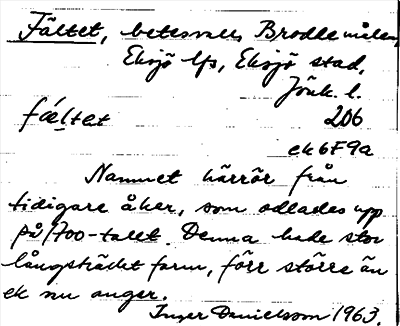 Fältet, betesvall, Brodlemålen,
Eksjö lfs, Eksjö stad,
Jönk. l.
fæ̀ltet 206
ek 6F9a
Namnet härrör från
tidigare åker, som odlades upp
på 1700-talet. Denna hade stor
långsträckt form, förr större än
ek nu anger.
Inger Danielsson 1963.